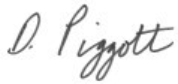 D. Piggott